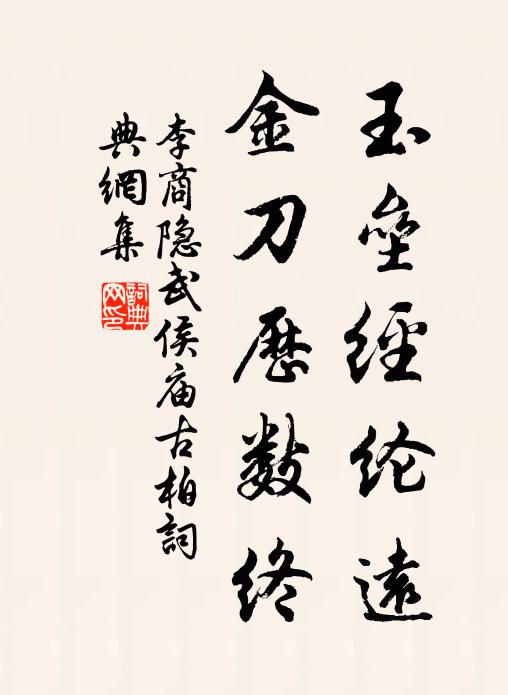 玉垒經纶遠
金刀歷数终
李商隐武侯庙古柏詞
典網集
詞典网印